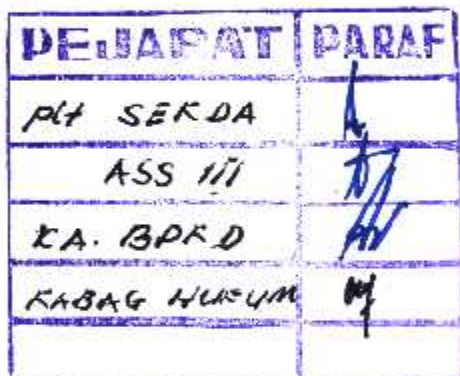 PEJABAT PARAF
Plt SEKDA
ASS III
KA. BPKD
KABAG HUKUM